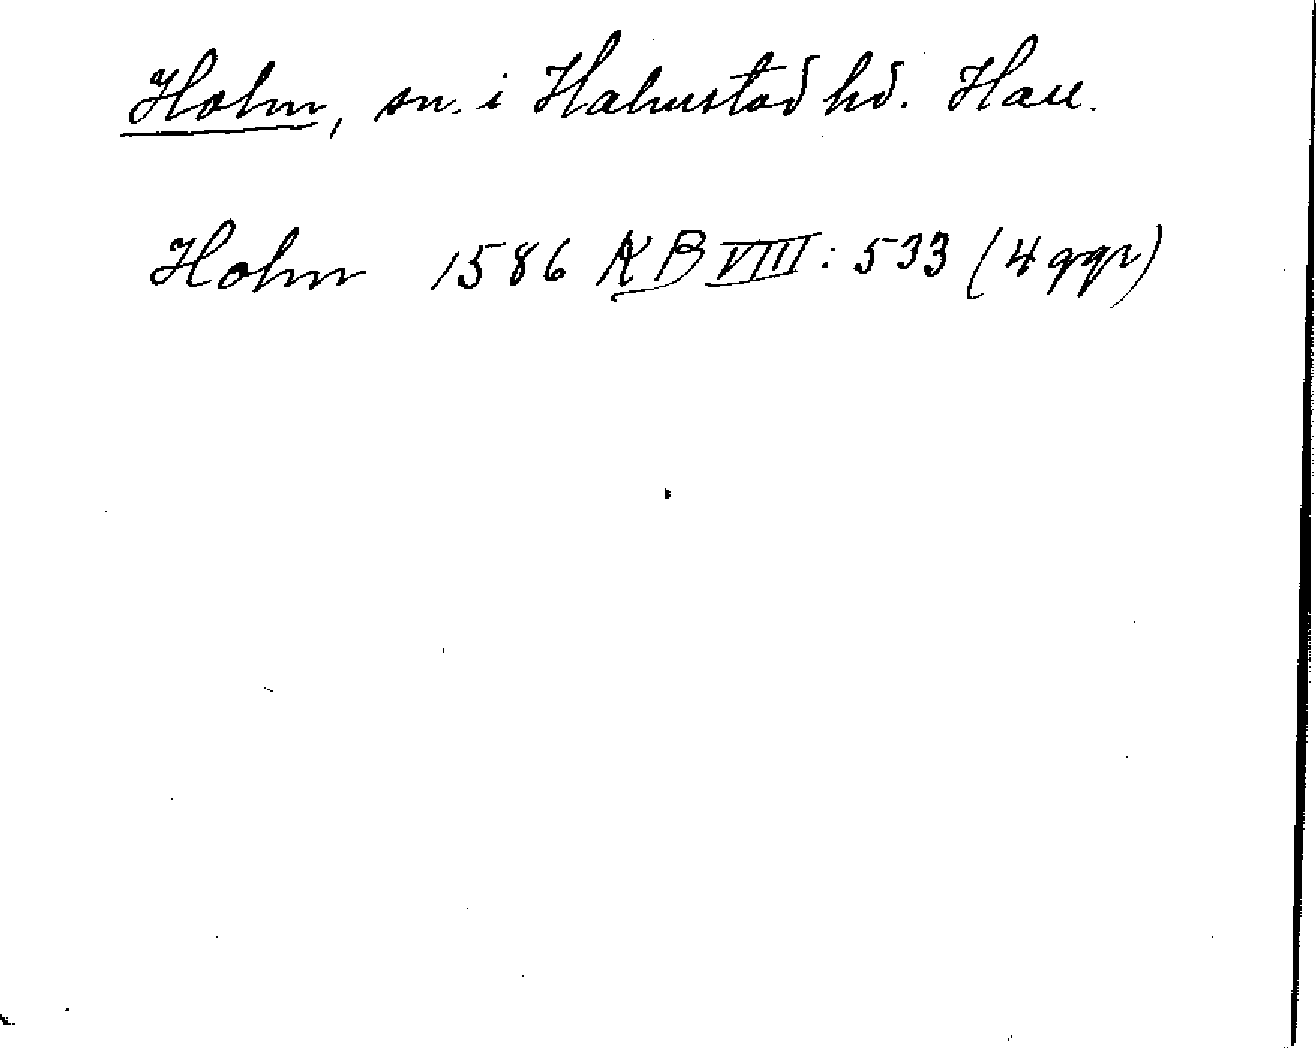 Holm, sn. i Halmstad hd. Hall.
Holm 1586 KB VIII: 533 (4 ggr)